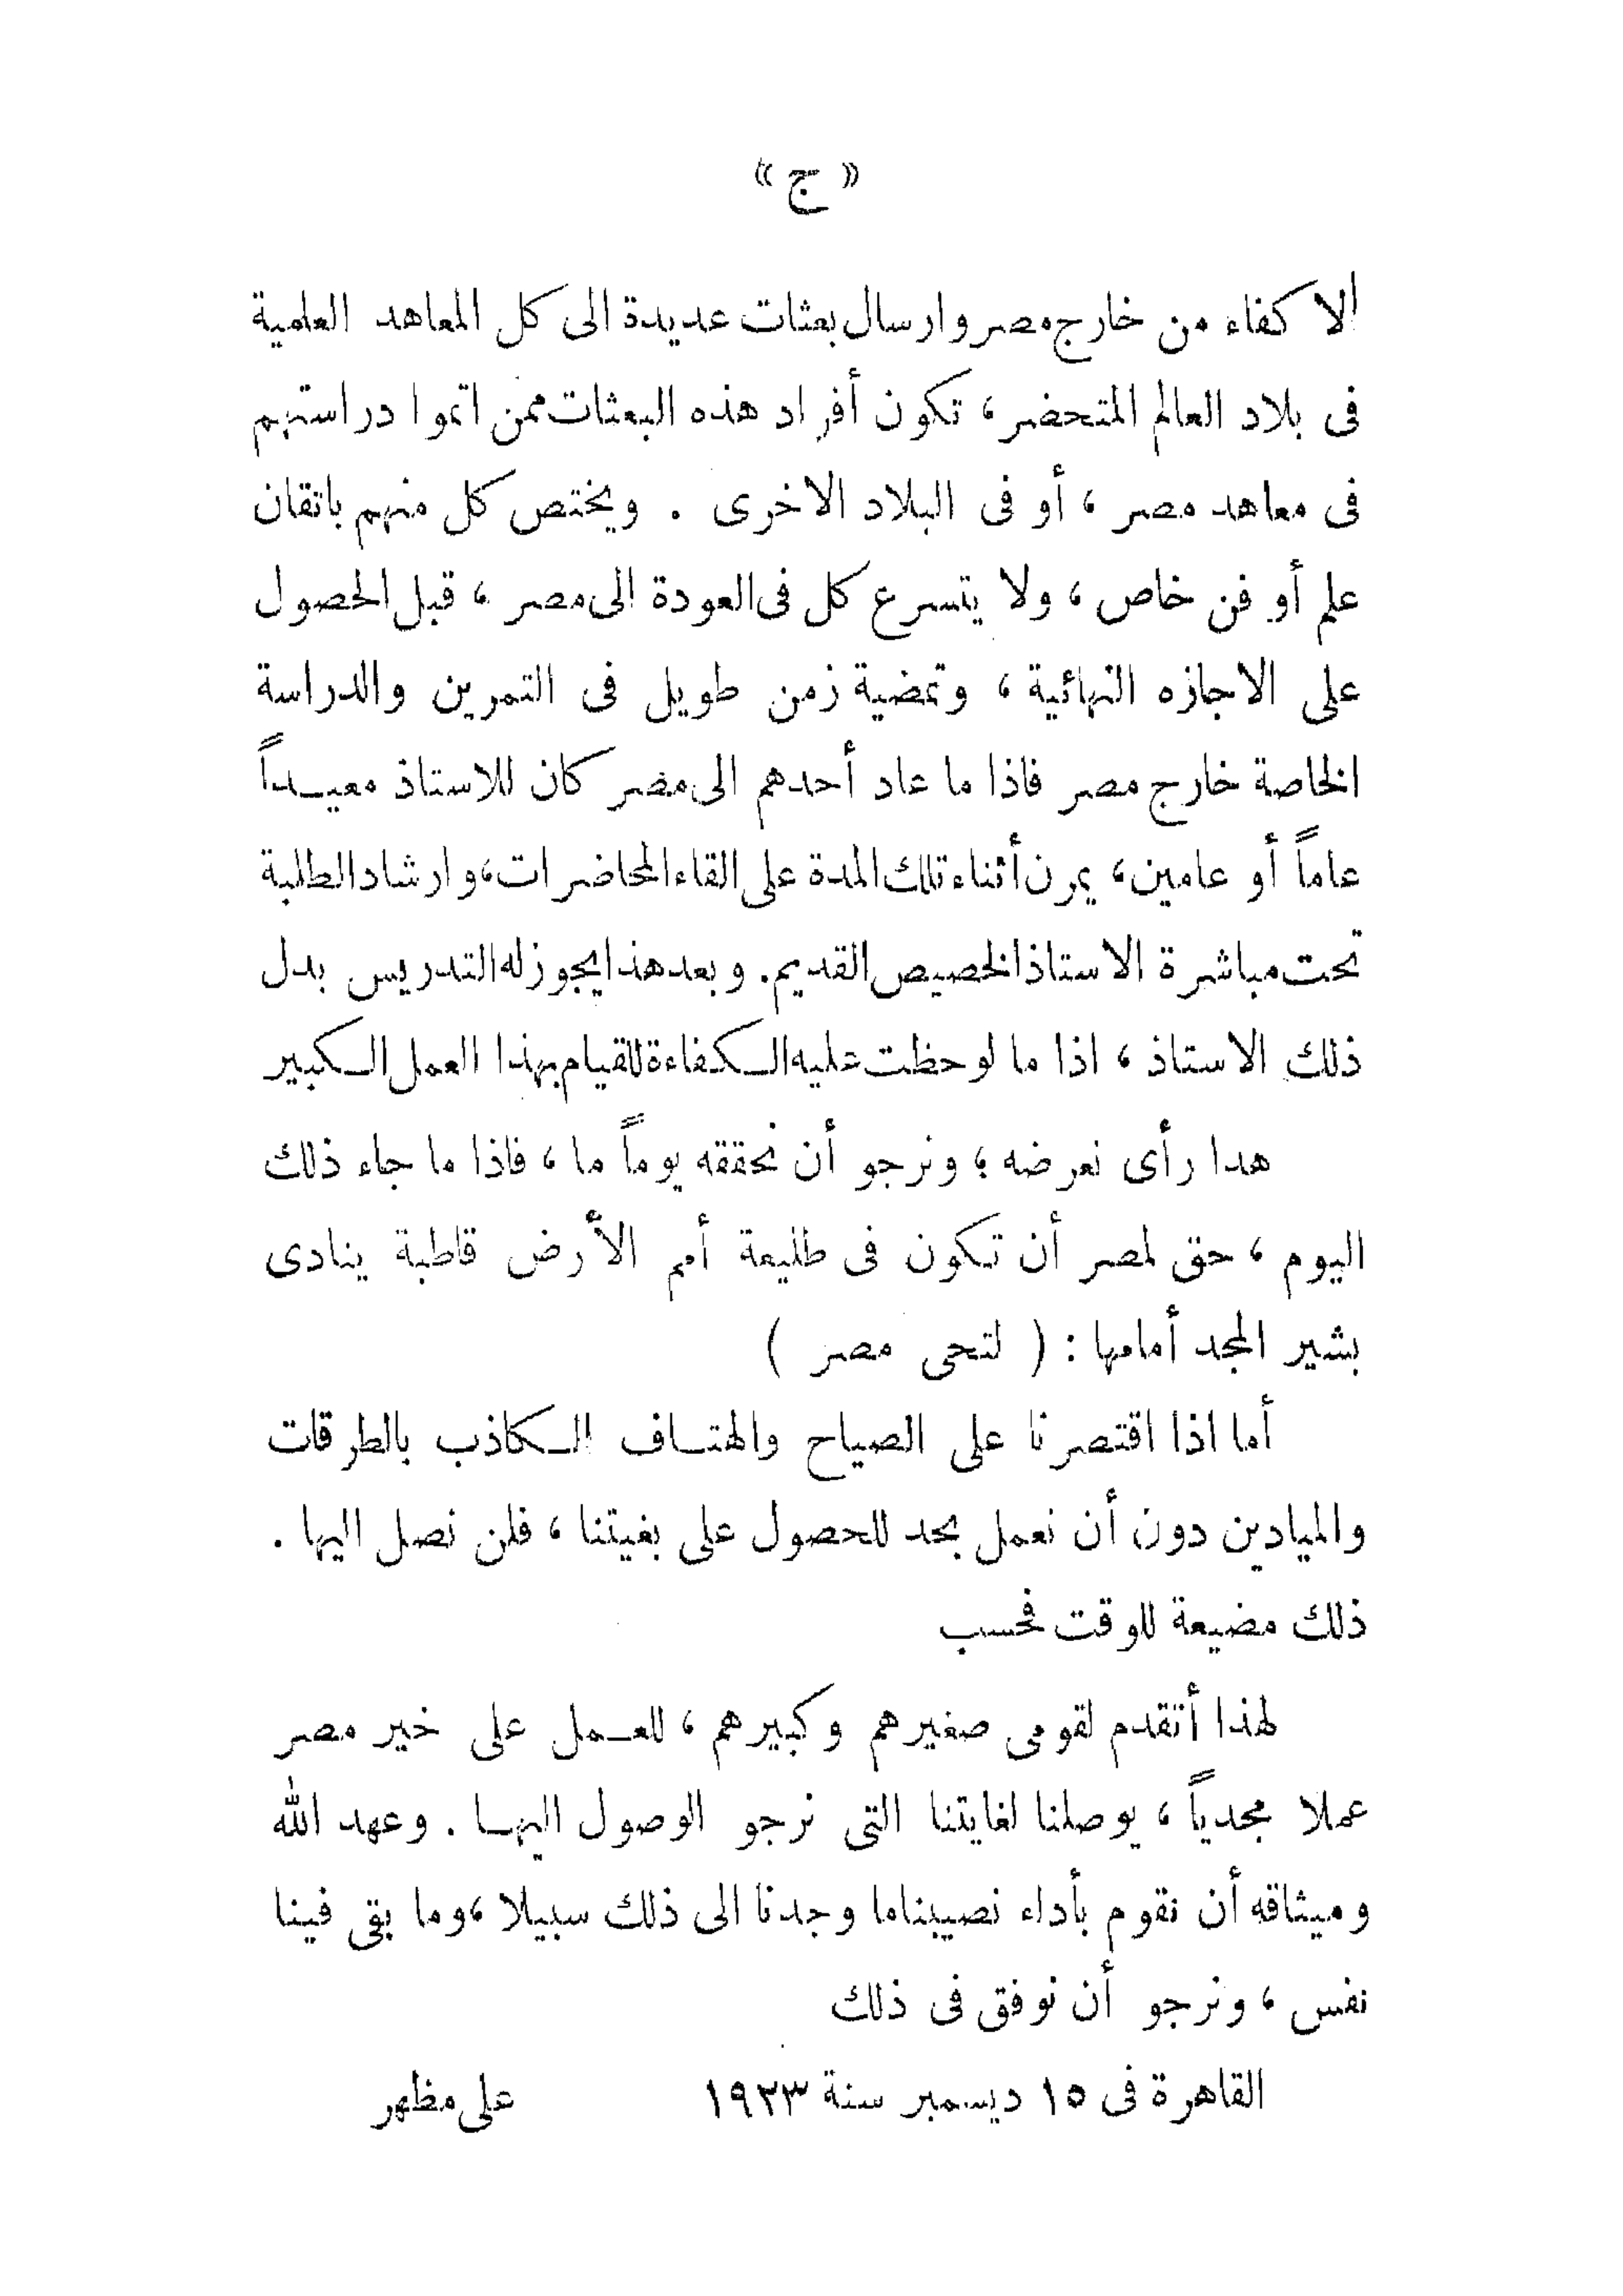 « ج »
الاكفاء من خارج مصر وارسال بعثات عديدة الى كل المعاهد العلمية
فى بلاد العالم المتحضر، تكون أفراد هذه البعثات ممن اتموا دراستهم
فى معاهد مصر ، أو فى البلاد الاخرى . ويختص كل منهم باتقان
علم أو فن خاص ، ولا يتسرع كل فى العودة الى مصر ، قبل الحصول
على الاجازه النهائية ، وتمضية زمن طويل فى التمرين والدراسة
الخاصة خارج مصر فاذا ما عاد أحدهم الى مصر كان للاستاذ معيداً
عاماً أو عامين، يمرن أثناء تلك المدة على القاء المحاضرات، وارشاد الطلبة
تحت مباشرة الاستاذ الخصيص القديم. وبعد هذا يجوز له التدريس بدل
ذلك الاستاذ ، اذا ما لوحظت عليه الكفاءة للقيام بهذا العمل الكبير
هدا رأى نعرضه ؛ ونرجو أن نحققه يوماً ما ، فاذا ما جاء ذلك
اليوم ، حق لمصر أن تكون فى طليعة أمم الأرض قاطبة ينادى
بشير المجد أمامها : ( لتحى مصر )
أما اذا اقتصرنا على الصياح والهتاف الكاذب بالطرقات
والميادين دون أن نعمل بجد للحصول على بغيتنا ، فلن نصل اليها .
ذلك مضيعة للوقت فحسب
لهذا أتقدم لقومى صغيرهم وكبيرهم ، للعمل على خير مصر
عملا مجدياً ، يوصلنا لغايتنا التى نرجو الوصول اليها . وعهد الله
وميثاقه أن نقوم بأداء نصيبنا ما وجدنا الى ذلك سبيلا ، وما بقى فينا
نفس ، ونرجو أن نوفق فى ذلك
القاهرة فى ١٥ ديسمبر سنة ١٩٢٣ على مظهر